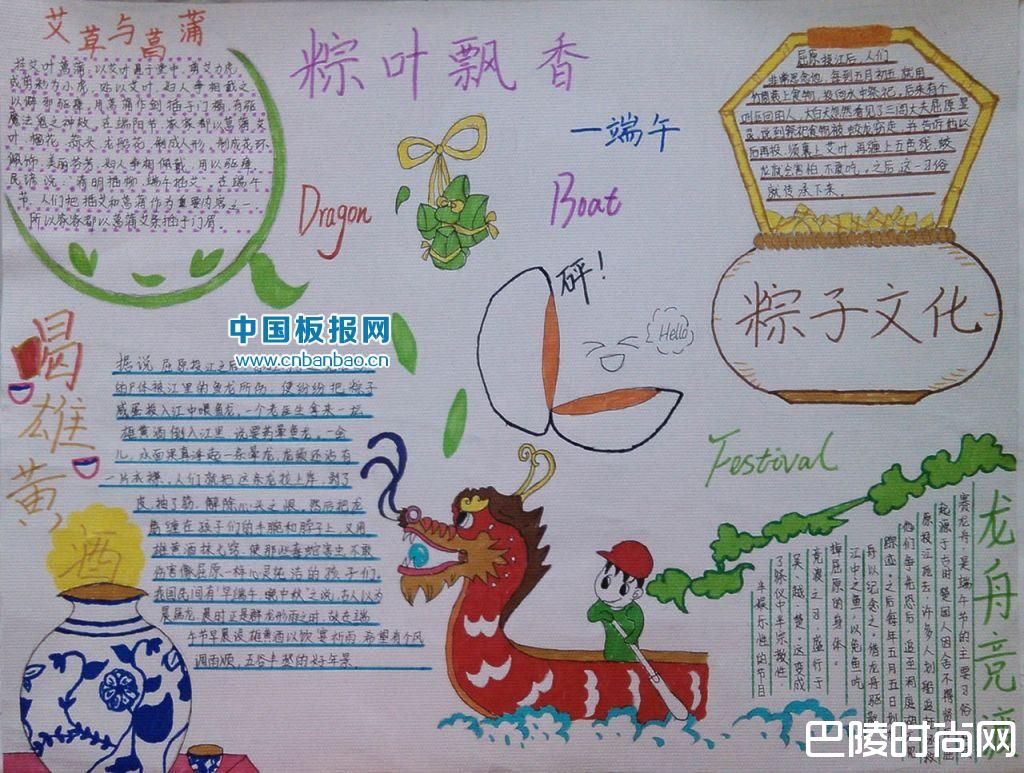 艾草与菖蒲
挂艾叶菖蒲：以艾叶悬于堂中，剪艾为虎，
或剪彩为小虎，贴以艾叶，妇人争相戴之，
以僻邪驱瘴。用菖蒲作剑插于门楣，有驱
魔法鬼之神效。在端阳节，家家都以菖蒲艾
叶、榴花、蒜头、龙船花，制成人形，制成花环、
佩饰，美丽芬芳，妇人争相佩戴，用以驱瘴。
民谚说：清明插柳，端午插艾。在端午
节，人们把插艾和菖蒲作为重要内容之一，
所以家家都以菖蒲艾条插于门眉。
粽叶飘香
一端午
Dragon
Boat
屈原投江后，人们
非常思念他，每到五月初五，就用
竹筒装上食物，投向水中祭祀，后来有个
叫区回的人，大白天忽然看见了三闾大夫屈原显
灵，说到祭祀食物被蛟龙窃走，并告诉他以
后再投，须裹上艾叶，再缠上五色线，蛟
龙就会害怕不敢吃。之后这一习俗
就传承下来。
粽子文化
砰！
Hello
中国板报网
www.cnbanbao.cn
喝雄黄酒
据说屈原投江之后，
的尸体被江里的鱼龙所伤，便纷纷把粽子
咸蛋投入江中喂鱼龙。一个老医生拿来一坛
雄黄酒倒入江里，说要药晕鱼龙。一会
儿，水面果真浮起一条晕龙，龙须还沾有
一片衣襟，人们就把这条龙拉上岸，剥了
皮，抽了筋，解除心头之恨。然后把龙
筋缠在孩子们的手腕和脖子上，又用
雄黄酒抹七窍，使那些毒蛇害虫不敢
伤害像屈原一样心灵纯洁的孩子们。
我国民间有“早端午，晚中秋”之说，古人以为
晨属龙，晨时正是群龙形雨之时，故在端
午节早晨设雄黄酒以饮，宴祈雨，希望有个风
调雨顺，五谷丰登的好年景。
Festival
龙舟竞渡
赛龙舟，是端午节的主要习俗
起源于古时楚国人因舍不得贤
原投江死去，许多人划船追赶
他们争先恐后，追至洞庭湖
踪迹。之后每年五月五日划
舟以纪念之。借龙舟驱散
江中之鱼，以免鱼吃
掉屈原的身体。
竞渡之习，盛行于
吴、越、楚。这变成
了祭仪中半宗教性，
半娱乐性的节目
巴陵时尚网